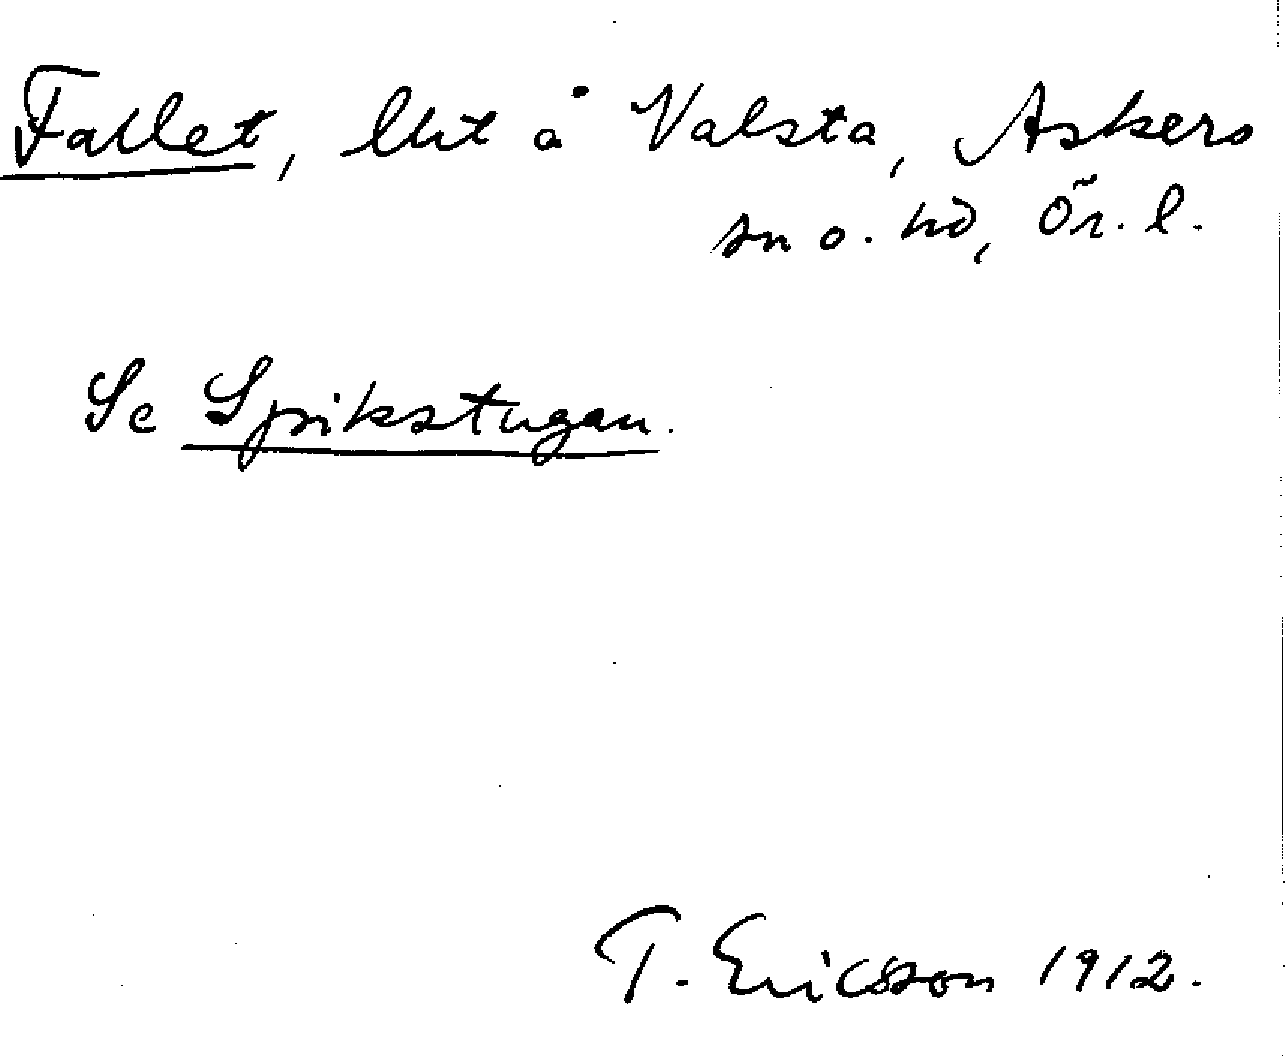 Fallet, lht å Valsta, Askers
sn o. hd, Ör. l.
Se Spikstugan.
T. Ericsson 1912.